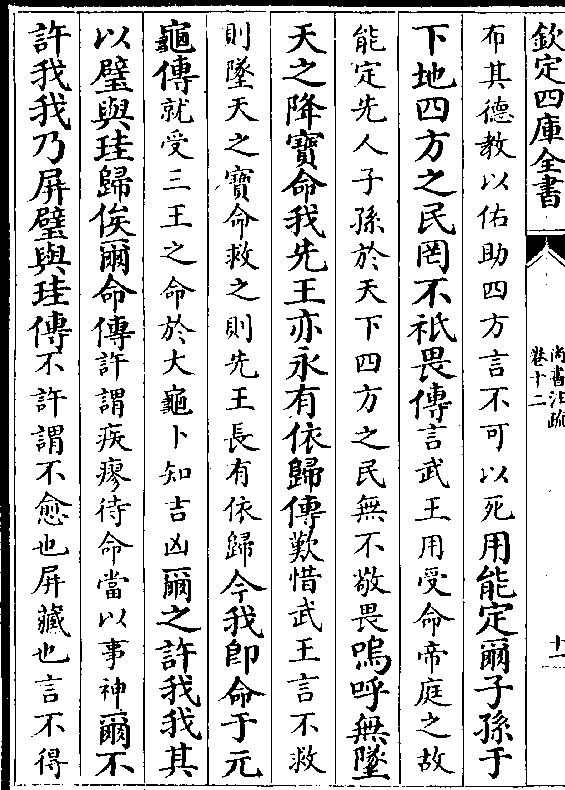 欽定四庫全書
尚書注疏
卷十二
十一
布其德教以佑助四方言不可以死用能定爾子孫于
下地四方之民罔不祇畏傳言武王用受命帝庭之故
能定先人子孫於天下四方之民無不敬畏嗚呼無墜
天之降寶命我先王亦永有依歸傳歎惜武王言不救
則墜天之寶命救之則先王長有依歸今我卽命于元
龜傳就受三王之命於大龜卜知吉凶爾之許我我其
以璧與珪歸俟爾命傳許謂疾瘳待命當以事神爾不
許我我乃屏璧與珪傳不許謂不愈也屏藏也言不得